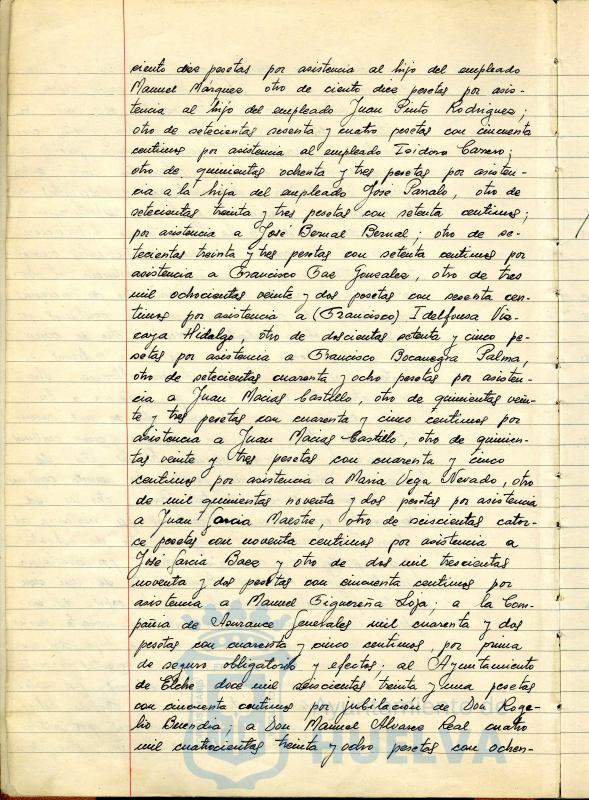 ciento diez pesetas por asistencia al hijo del empleado
Manuel Márquez otro de ciento diez pesetas por asis-
tencia al hijo del empleado Juan Pinto Rodriguez;
otro de setecientas sesenta y cuatro pesetas con cincuenta
centimos por asistencia al empleado Isidoro Carrero;
otro de quinientas ochenta y tres pesetas por asisten-
cia a la hija del empleado José Parralo, otro de
setecientas treinta y tres pesetas con setenta centimos;
por asistencia a José Bernal Bernal; otro de se-
tecientas treinta y tres pesetas con setenta centimos por
asistencia a Francisco Gonzalez, otro de tres
mil ochocientas veinte y dos pesetas con sesenta cen-
timos por asistencia a (Francisco) Idelfonsa Viz-
caya Hidalgo, otro de doscientas setenta y cinco pe-
setas por asistencia a Francisco Bocanegra Palma,
otro de setecientas cuarenta y ocho pesetas por asisten-
cia a Juan Macias Castillo, otro de quinientas vein-
te y tres pesetas con cuarenta y cinco centimos por
asistencia a Juan Macias Castillo, otro de quinien-
tas veinte y tres pesetas con cuarenta y cinco
centimos por asistencia a Maria Vega Nevado, otro
de mil quinientas noventa y dos pesetas por asistencia
a Juan Garcia Maestre, otro de seiscientas cator-
ce pesetas con noventa centimos por asistencia a
José Garcia Baez y otro de dos mil trescientas
noventa y dos pesetas con cincuenta centimos por
asistencia a Manuel Figuereña; a la Com-
pañia de Assurance Generales mil cuarenta y dos
pesetas con cuarenta y cinco centimos, por prima
de seguro obligatorio y efectos. al Ayuntamiento
de Elche doce mil seiscientas treinta y una pesetas
con cincuenta centimos por jubilación de Don Roge-
lio Buendia, a Don Manuel Alvarez Real cuatro
mil cuatrocientas treinta y ocho pesetas con ochen-
HUELVA